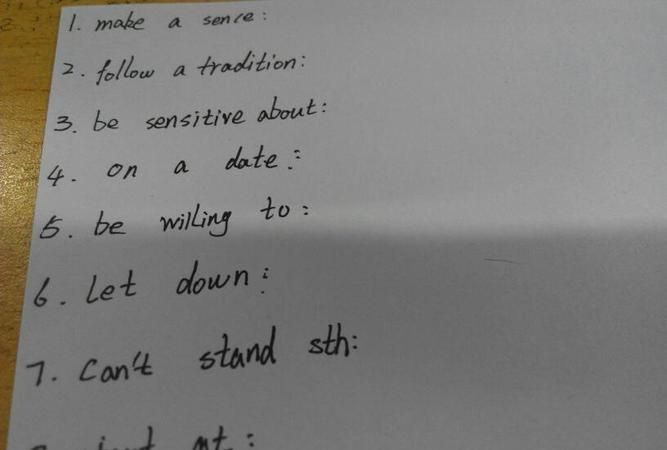 1. make a sence:
2. follow a tradition:
3. be sensitive about:
4. on a date:
5. be willing to:
6. Let down:
7. Can't stand sth: